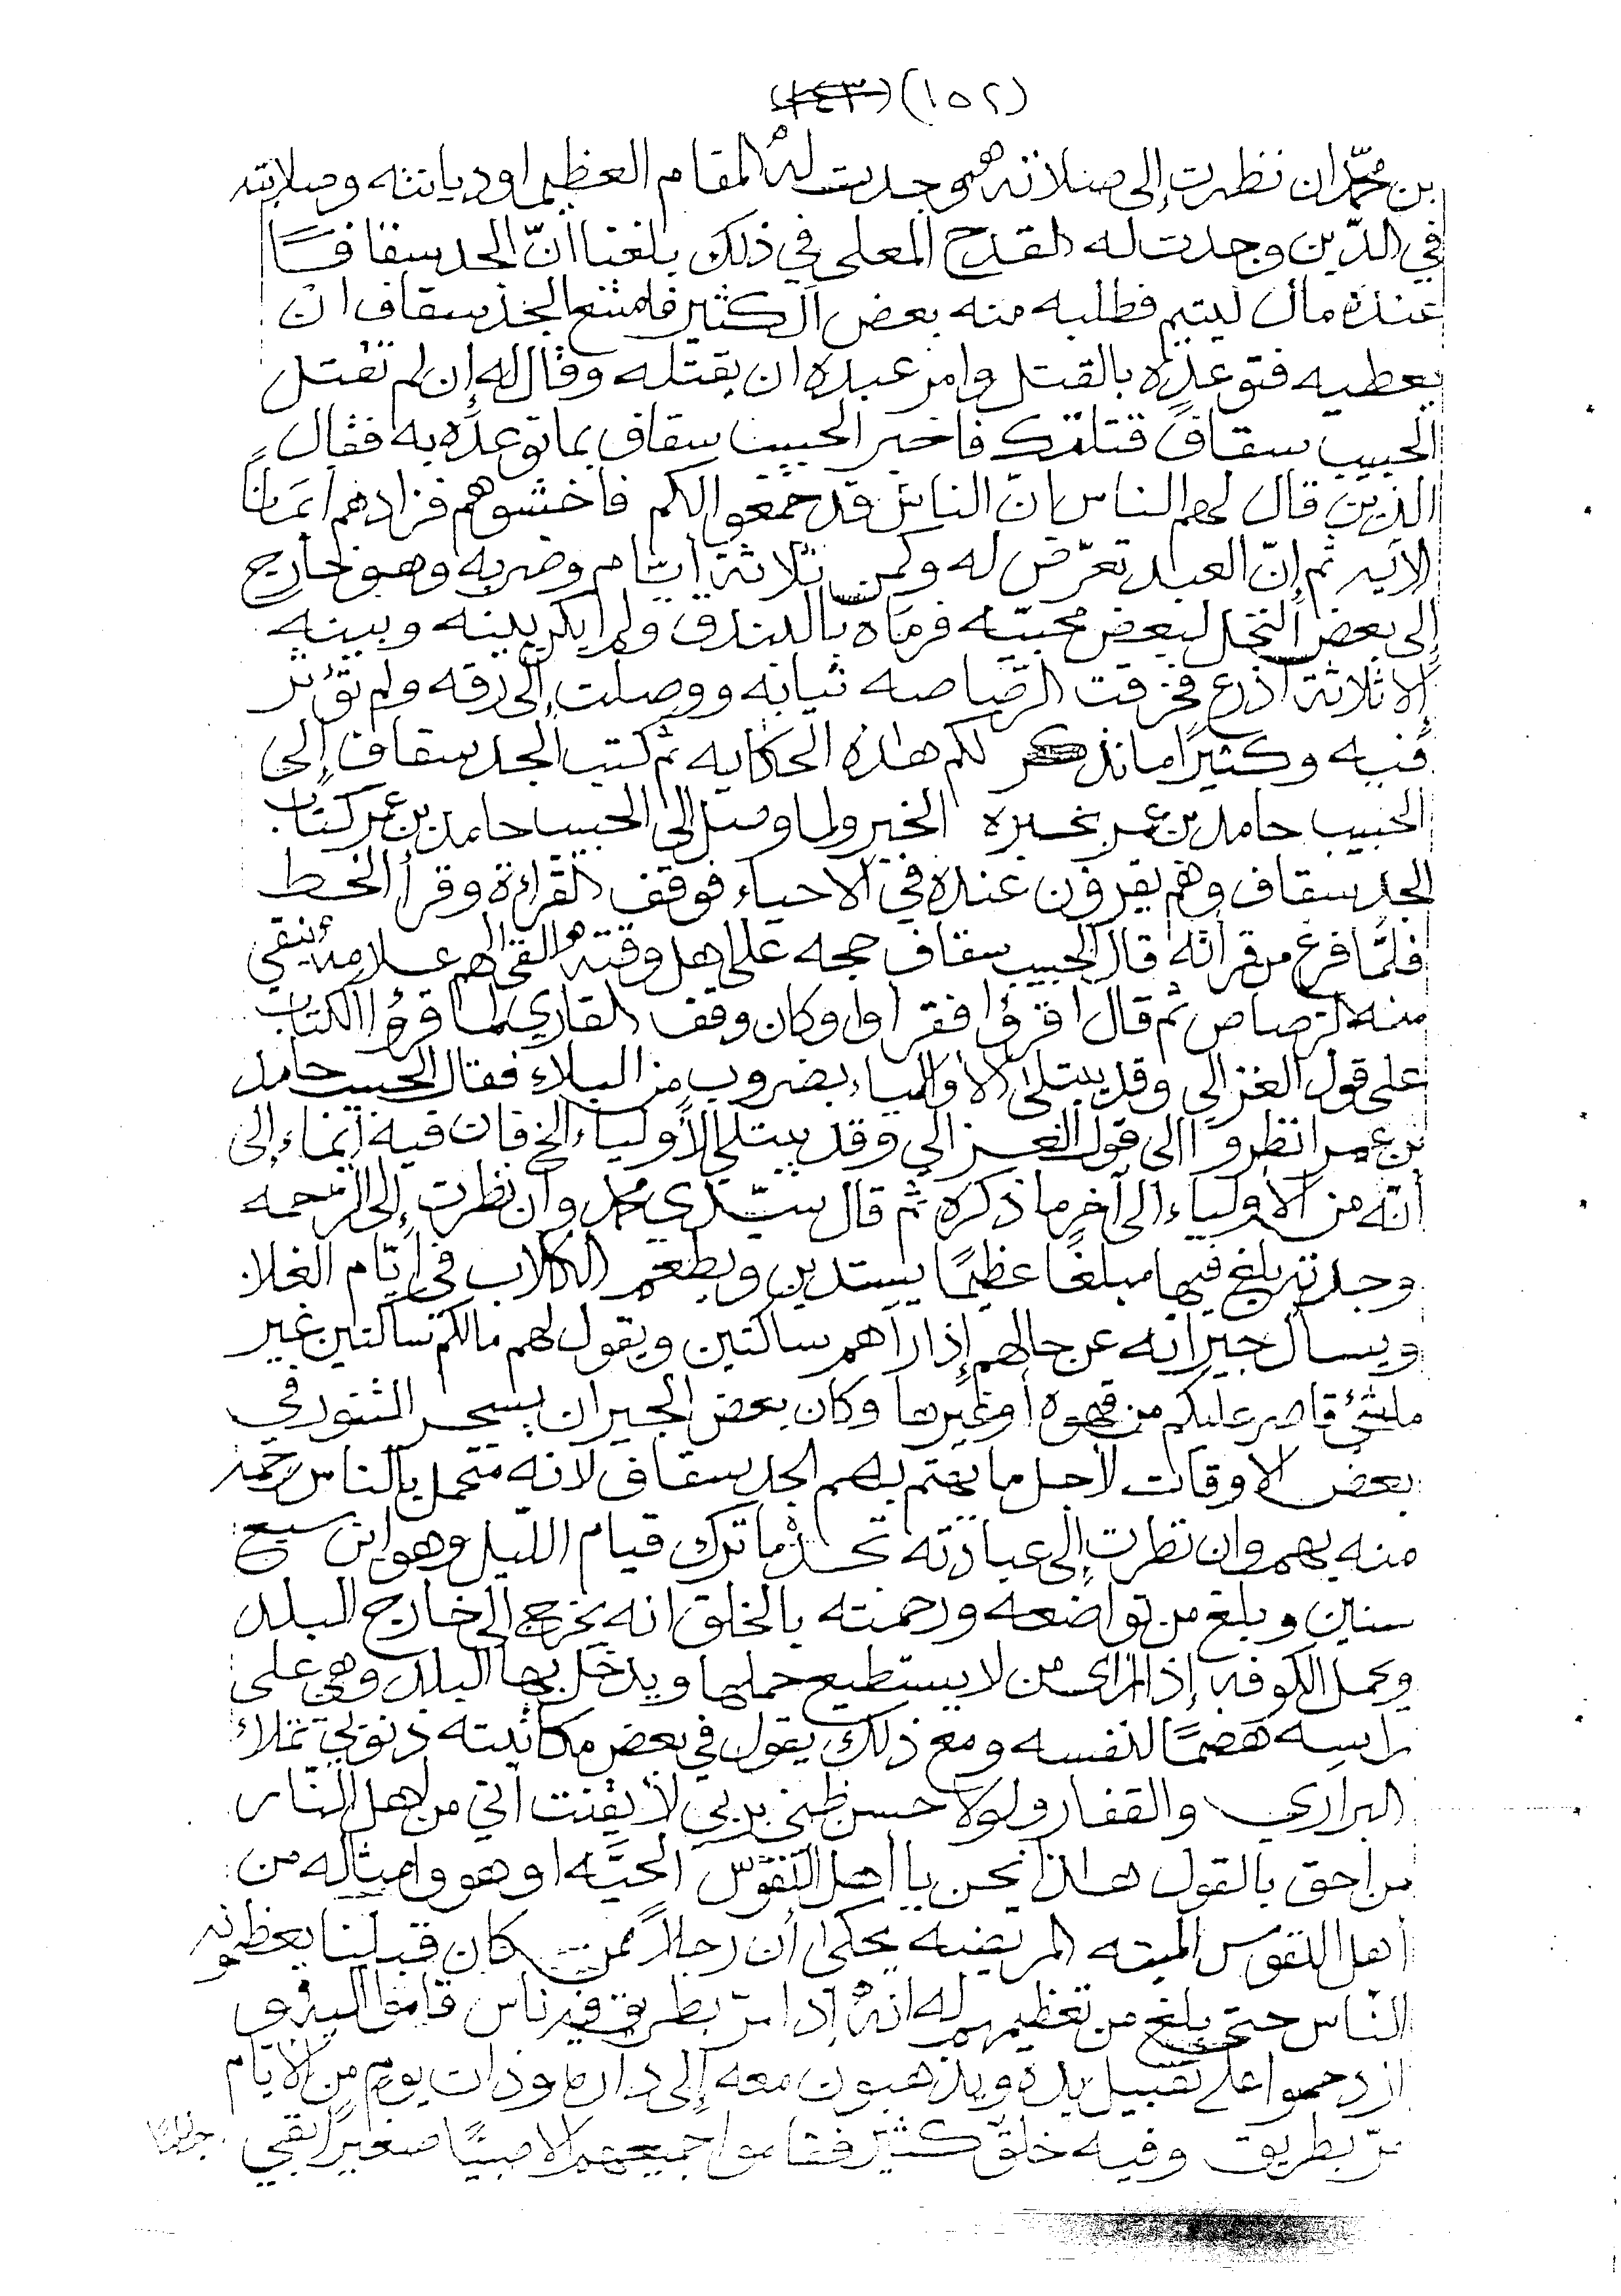 (١٥٢) (١٤٣)
بن محمّد ان نظرت إلى صلاته وجدت له المقام العظيم او ديانته وصلابته
في الدّين وجدت له القدح المعلى في ذلك بلغنا أنّ الجد سقاف
عنده مال ليتيم فطلبه منه بعض آل كثير فامتنع الجد سقاف ان
يعطيه فتوعده بالقتل وامر عبده ان يقتله وقال له إن لم تقتل
الحبيب سقاف قتلتك فاخبر الحبيب سقاف بما توعده به فقال
الذين قال لهم الناس انّ الناس قد جمعوا لكم فاخشوهم فزادهم ايمانًا
الآيه ثم إنّ العبد تعرّض له وكمن ثلاثة ايام وضربه وهو خارج
إلى بعض النخل لبعض محبيّه فرماه بالبندق ولم يكن بينه وبينه
إلا ثلاثة اذرع فخرقت الرصاصه ثيابه ووصلت إلى رقه ولم تؤثر
فيه وكثيرًا ما نذكر لكم هذه الحكايه ثم كتب الجد سقاف إلى
الحبيب حامد بن عمر بخبره الخبر ولما وصل إلى الحبيب حامد بن عمر كتاب
الجد سقاف وهم يقرؤن عنده في الاحياء فوقف القراءة وقرأ الخط
فلمّا فرغ من قرأته قال الحبيب سقاف حجه على اهل وقته القى لهم علامه ينقي
منه الرصاص ثم قال اقرؤا فقراوا وكان وقف القاري لما قرؤا الكتاب
على قول الغزالي وقد يبتلى الأولياء بضروب من البلاء فقال الحبيب حامد
بن عمر انظروا الى قول الغزالي وقد يبتلى الأولياء الخ فان فيه ايماء إلى
أنّه من الأولياء الى آخر ما ذكره ثم قال سيّدي محمد وان نظرت إلى الرحمه
وجدته بلغ فيها مبلغًا عظيمًا يستدين ويطعم الكلاب في ايّام الغلاء
ويسأل جيرانه عن حالهم إذا رآهم ساكتين ويقول لهم مالكم ساكتين غير
ماشئ قاصر عليكم من قهوه أو غيرها وكان بعض الجيران يسجر التنور في
بعض الاوقات لأجل ما يهتم بهم الجد سقاف لانه متحمل بالناس رحمة
منه بهم وان نظرت إلى عبادته تجده ما ترك قيام الليل وهو ابن سبع
سنين وبلغ من تواضعه ورحمته بالخلق انه يخرج إلى خارج البلد
ويحمل الكوفه إذا رأى من لا يستطيع حملها ويدخل بها البلد وهي على
راسه هضمًا لنفسه ومع ذلك يقول في بعض مكاتبته ذنوبي تملاء
البراري والقفار ولولا حسن ظني بربي لأيقنت أني من اهل النّار
من احق بالقول هذا نحن يا اهل النفوس الحيّه او هو وامثاله من
أهل النفوس الميته المريضه يحكى أن رجلاً ممن كان قبلنا يعظمونه
النّاس حتى بلغ من تعظيمهم له انه إذا مرّ بطريق فيه ناس قاموا اليه و
ازدحموا على تقبيل يده ويذهبون معه إلى داره وذات يوم من الأيام
مرّ بطريق وفيه خلق كثير فقاموا جميعهم الا صبيًا صغيرًا بقي جالسًا